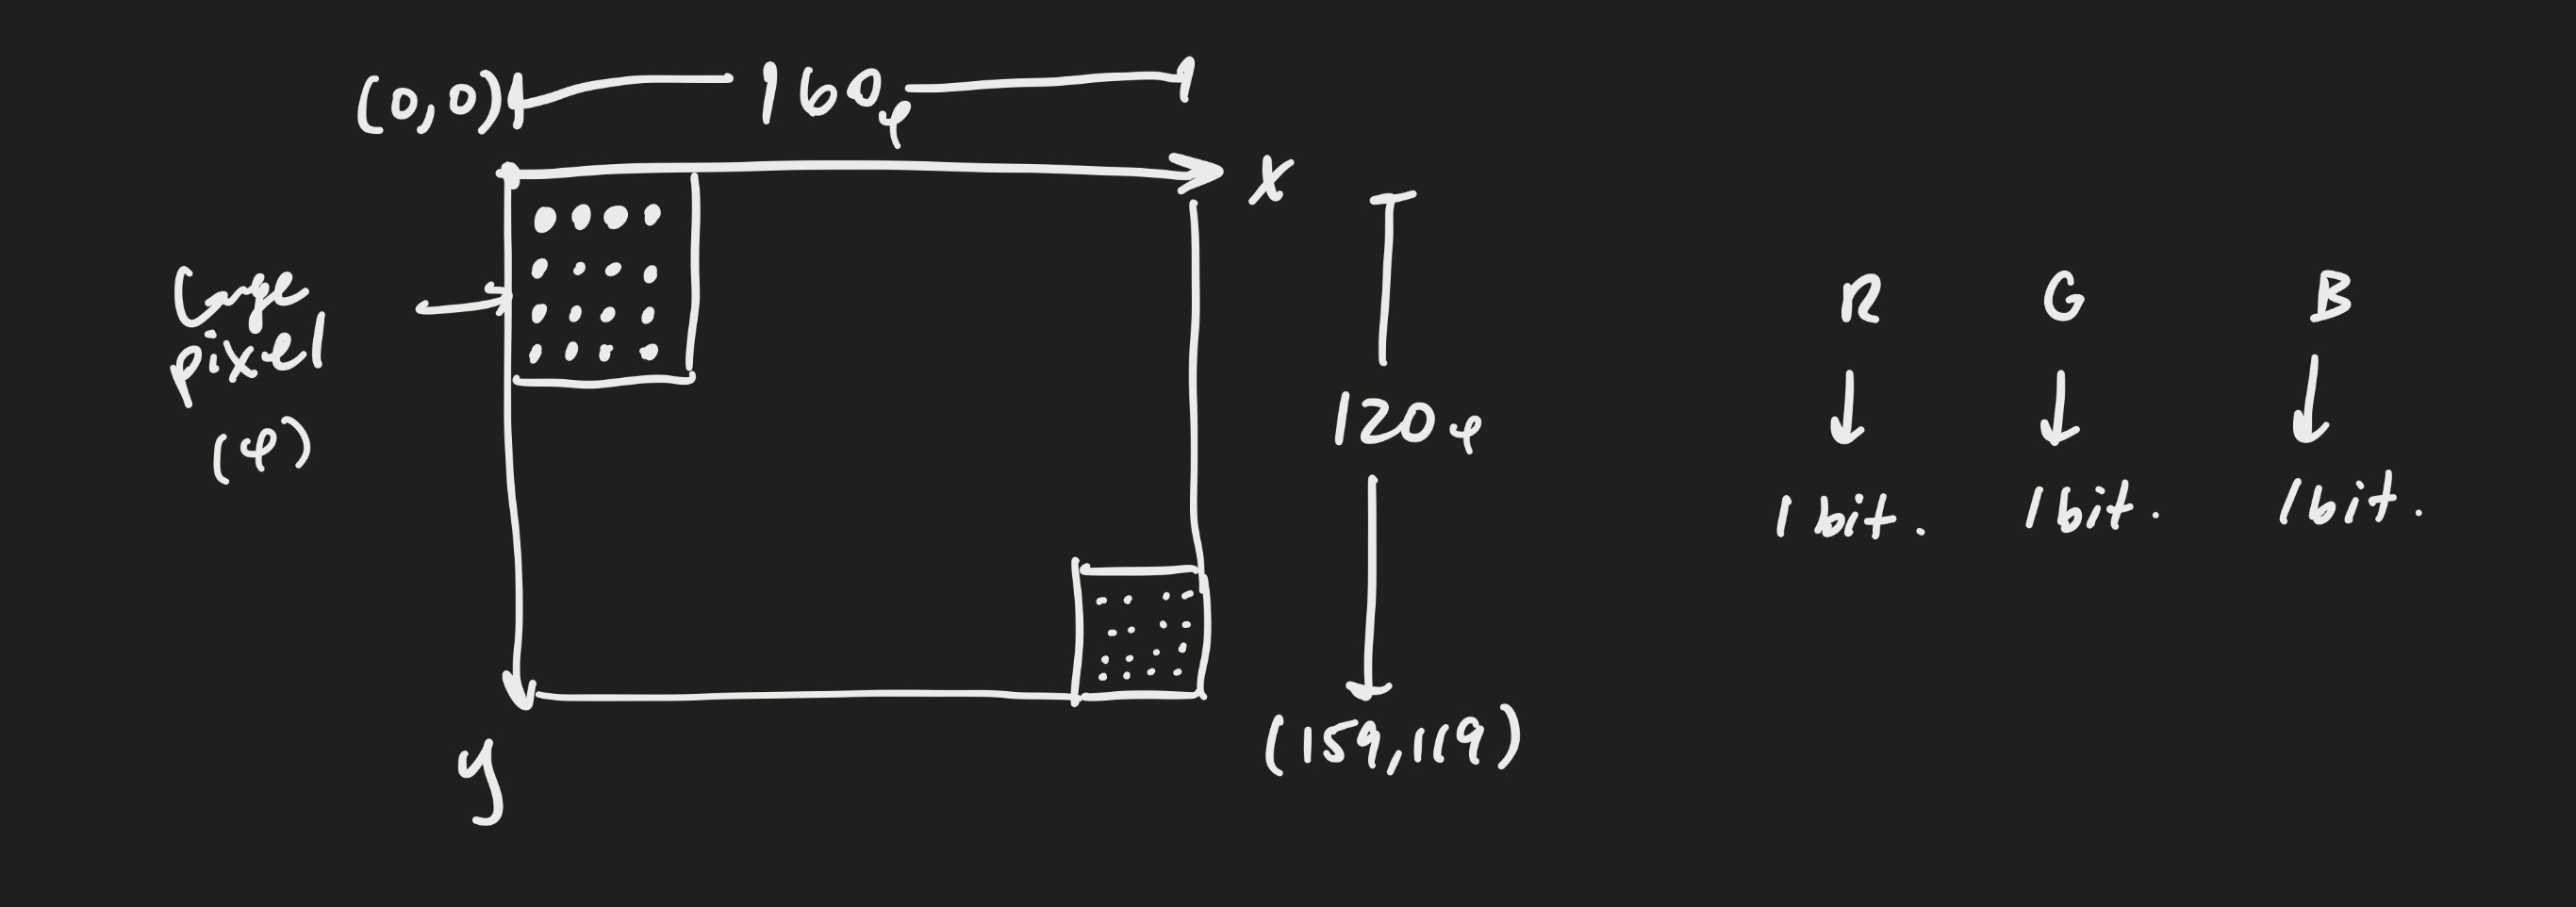 (0,0)
160φ
x
Large
pixel
(φ)
120φ
(159,119)
y
R G B
1 bit. 1 bit. 1 bit.